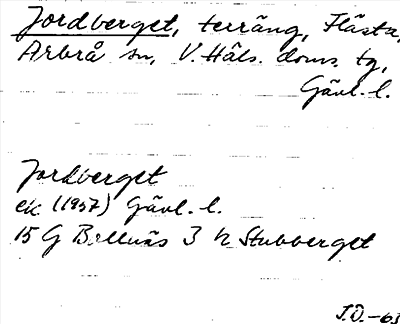 Jordberget, terräng, Flästa,
Arbrå sn, V. Häls. doms. tg,
Gävl. l.
Jordberget
ek (1957) Gävl. l.
15 G Bollnäs 3 h Stubberget
J.Ö.-63